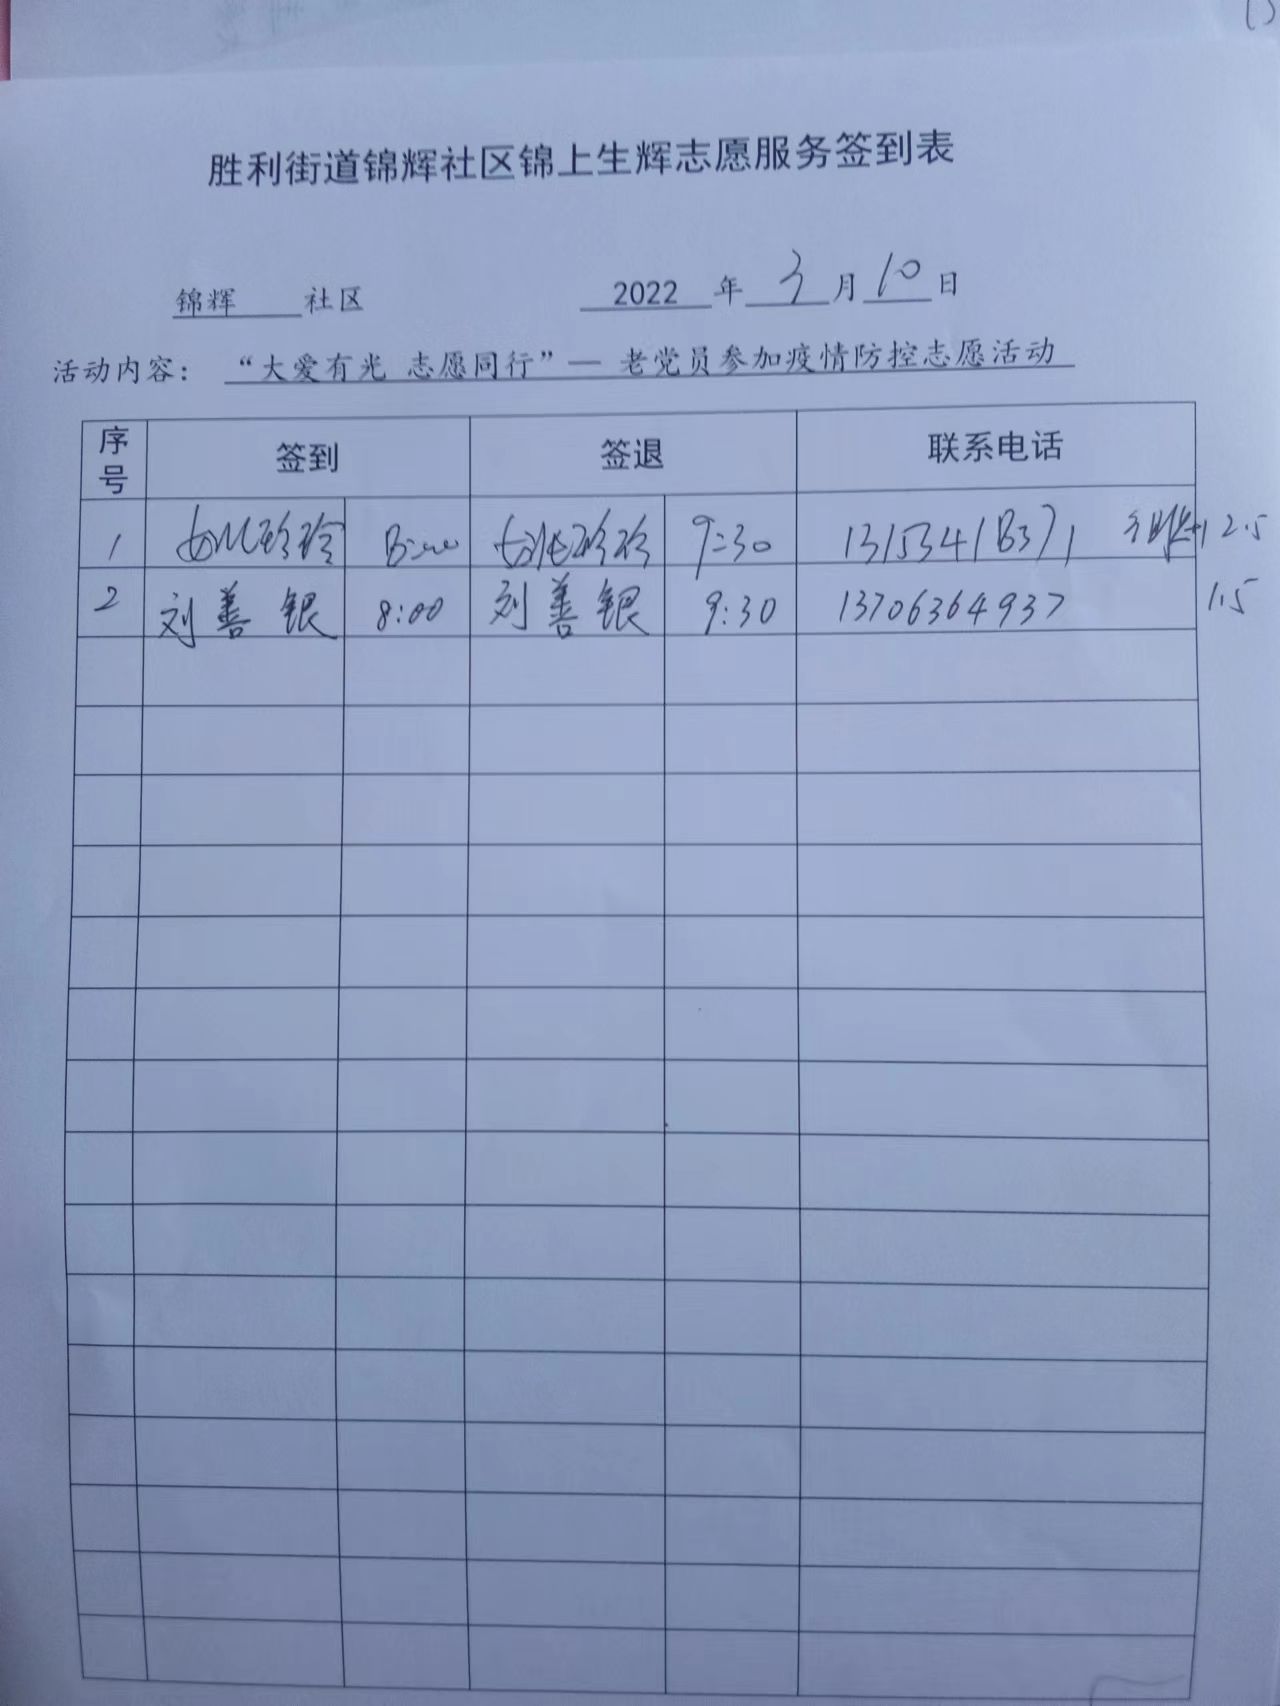 胜利街道锦辉社区锦上生辉志愿服务签到表
锦辉 社区 2022 年 3 月 10 日
活动内容： “大爱有光 志愿同行”— 老党员参加疫情防控志愿活动
序号 签到 签退 联系电话
1 玲玲 8:00 玲玲 9:30 13153418371 2.5
2 刘善银 8:00 刘善银 9:30 13706364937 1.5